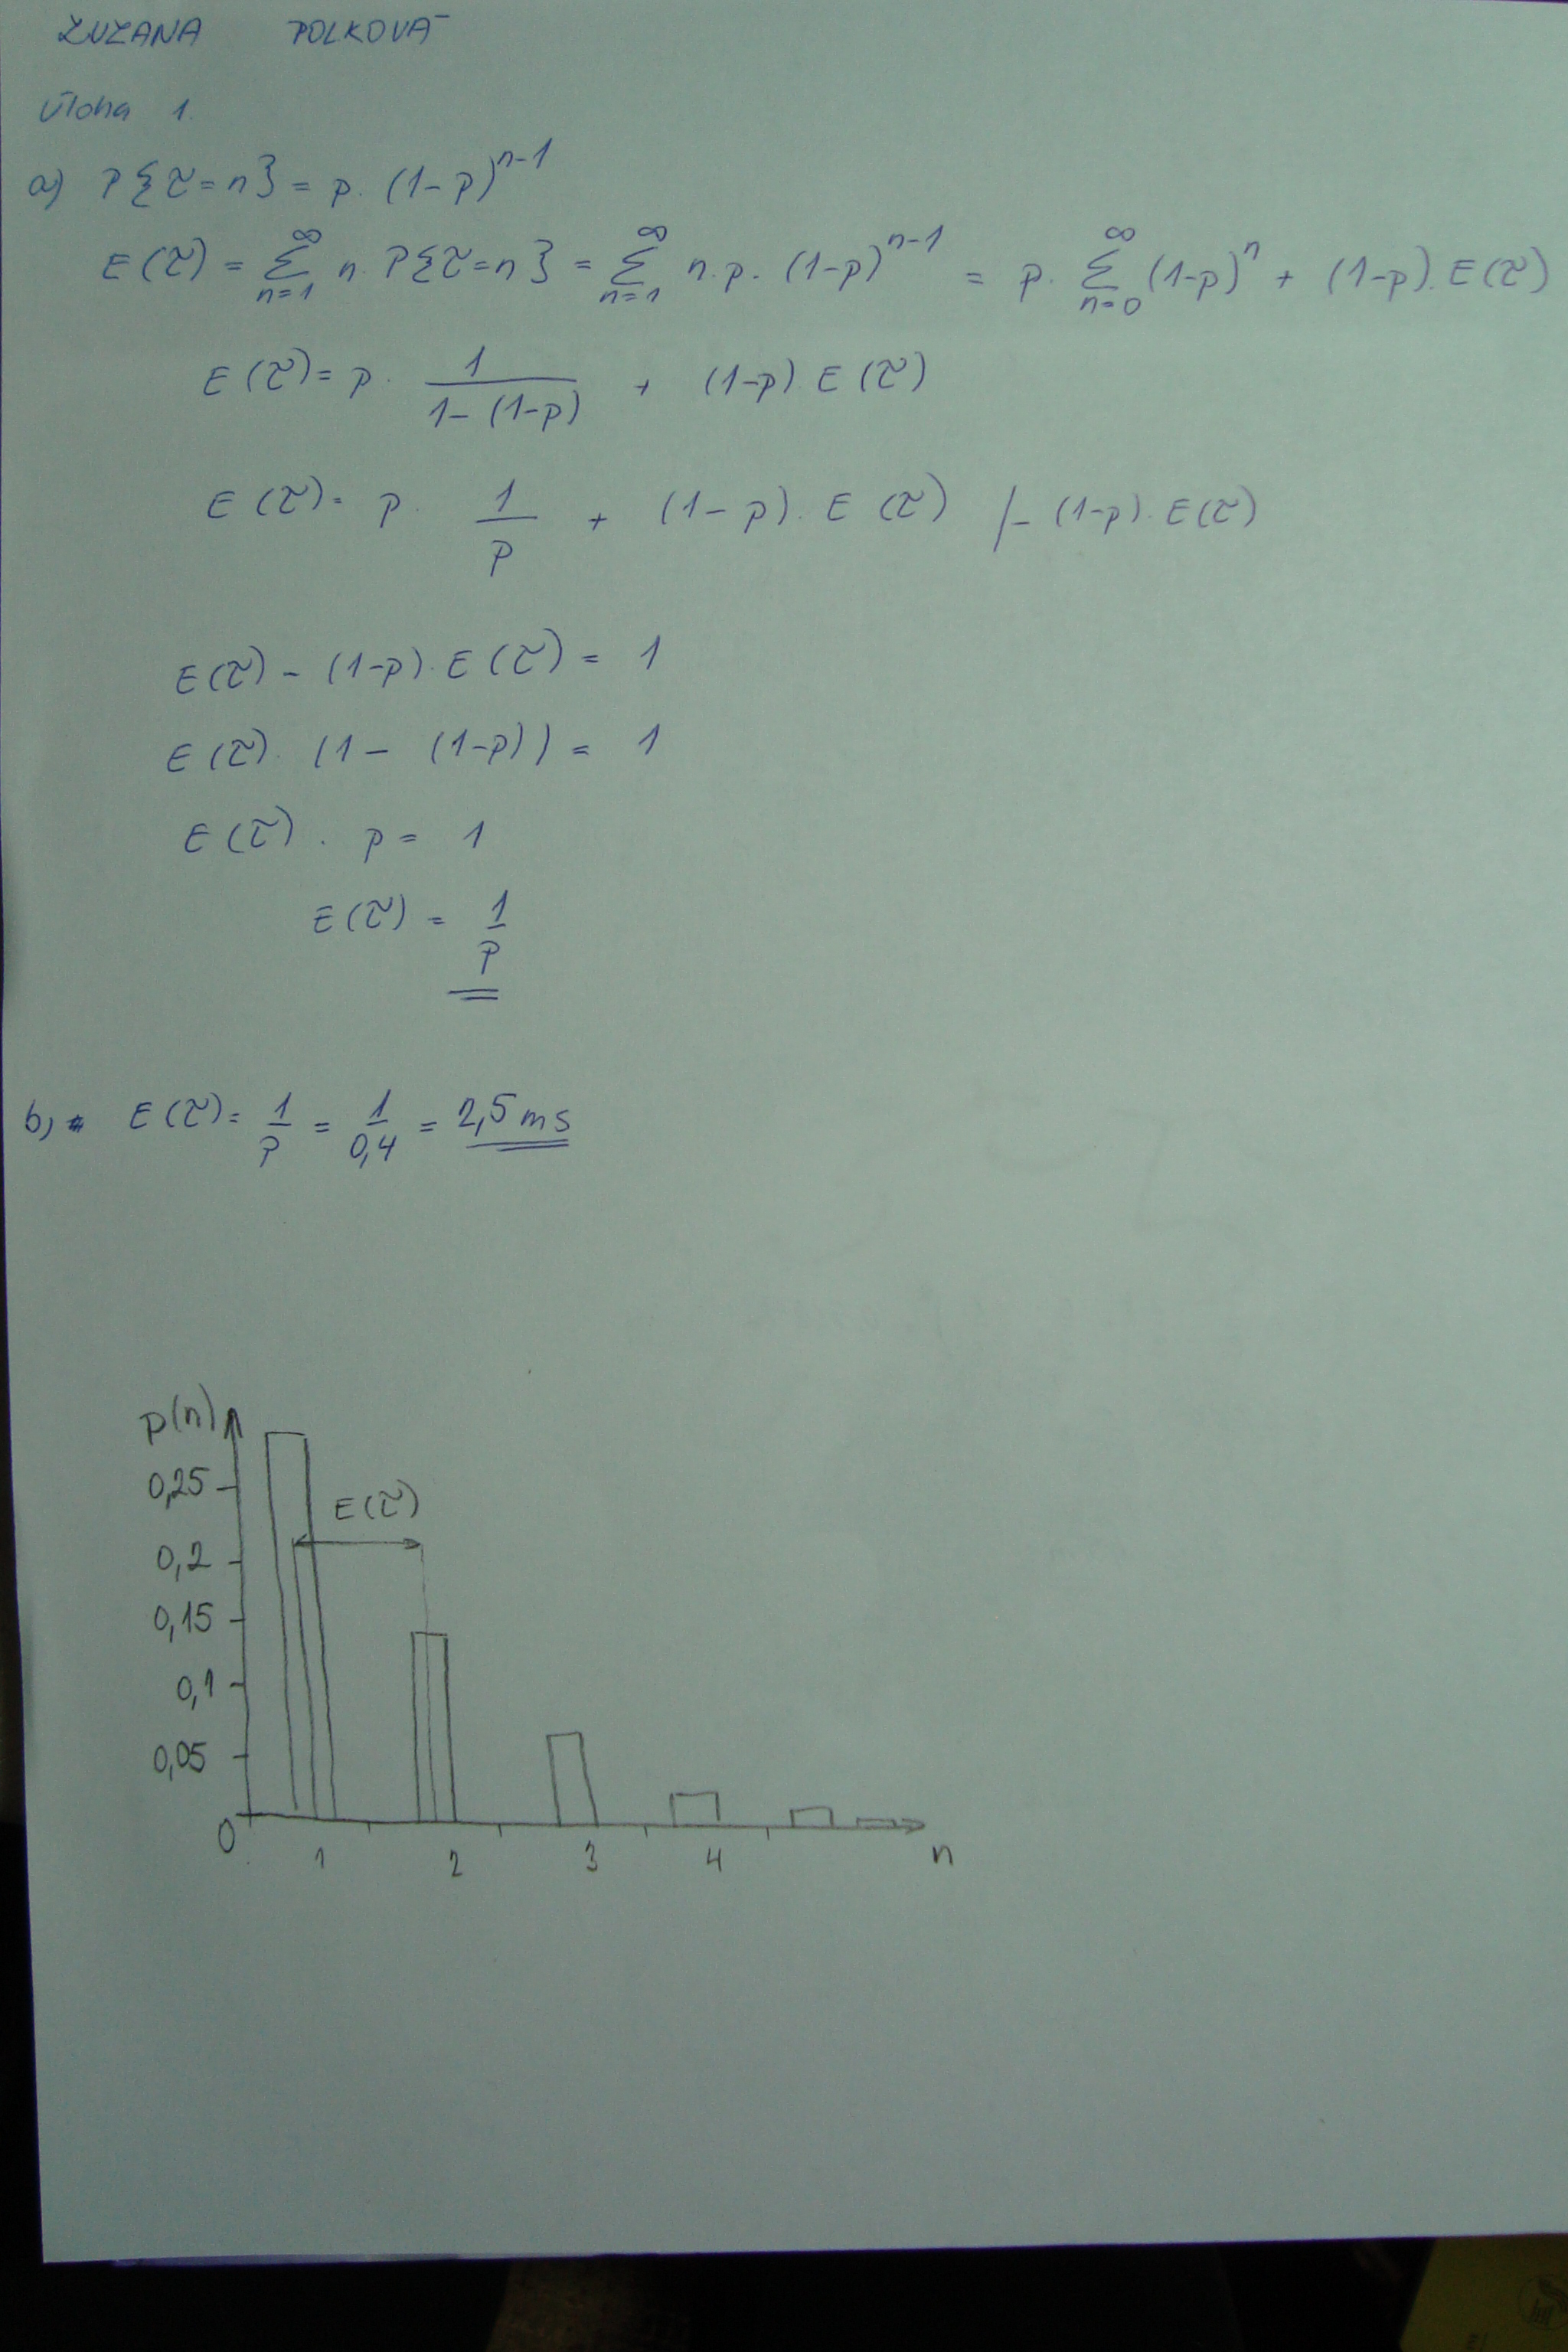 ZUZANA POLKOVÁ
Úloha 1.
a) P{τ=n} = p. (1-p)^{n-1}
E(τ) = ∑_{n=1}^{∞} n. P{τ=n} = ∑_{n=1}^{∞} n.p. (1-p)^{n-1} = p. ∑_{n=0}^{∞} (1-p)^n + (1-p). E(τ)
E(τ) = p. \frac{1}{1-(1-p)} + (1-p). E(τ)
E(τ) = p. \frac{1}{p} + (1-p). E(τ) /- (1-p). E(τ)
E(τ) - (1-p). E(τ) = 1
E(τ). (1-(1-p)) = 1
E(τ). p = 1
E(τ) = \frac{1}{p}
b) E(τ) = \frac{1}{p} = \frac{1}{0,4} = 2,5 ms
p(n)
0,25
E(τ)
0,2
0,15
0,1
0,05
0 1 2 3 4 n